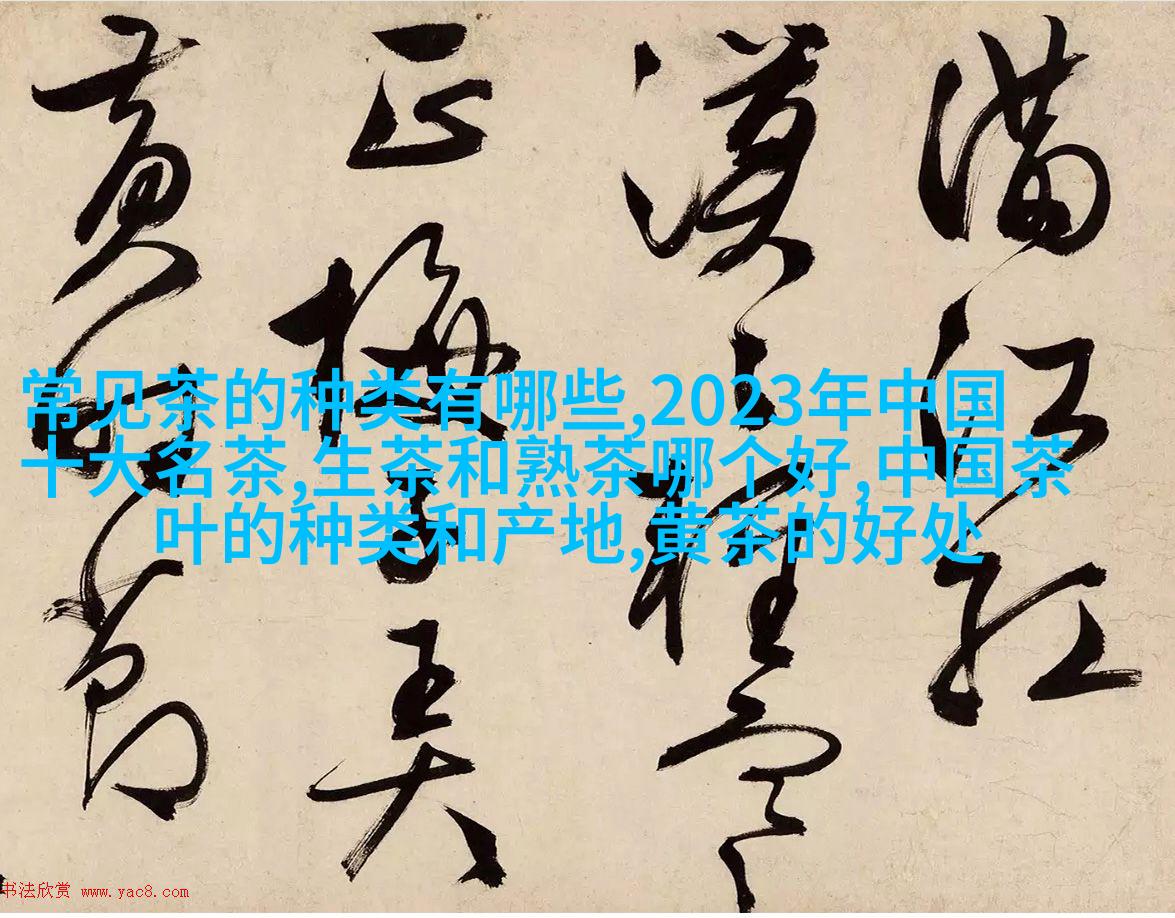 滿江紅
漠漠輕寒
正梅子弄
黃時節
常见茶的种类有哪些,2023年中国
十大名茶,生茶和熟茶哪个好,中国茶
叶的种类和产地,黄茶的好处
书法欣赏 www.yac8.com